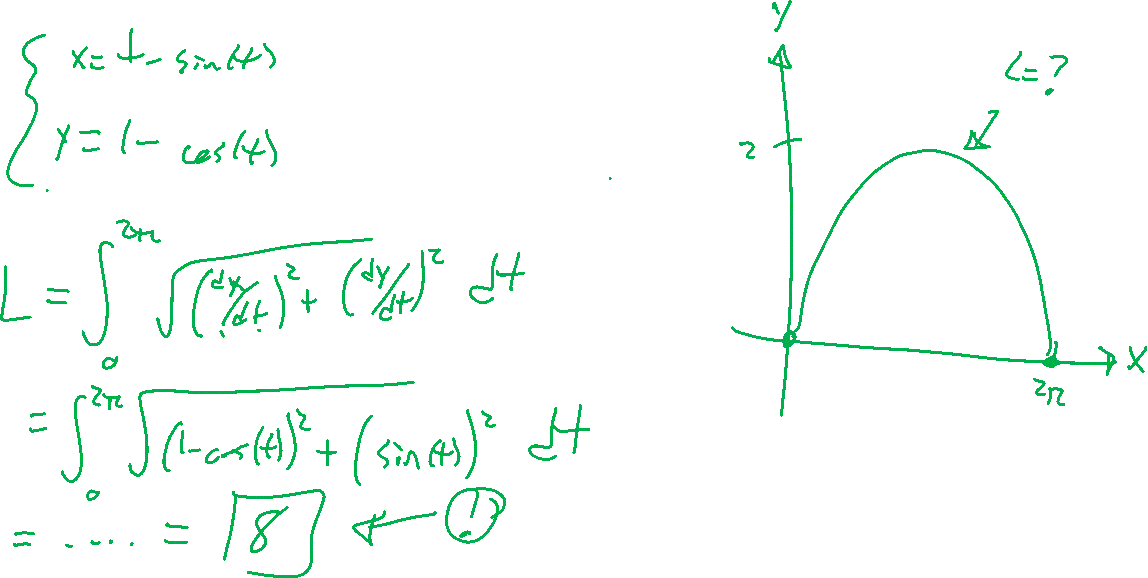 x = t - sin(t)
y = 1 - cos(t)
L = ∫₀^{2π} √((dx/dt)² + (dy/dt)²) dt
= ∫₀^{2π} √((1-cos(t))² + (sin(t))²) dt
= ..... = 8 ← !
y
L=?
2
x
2π